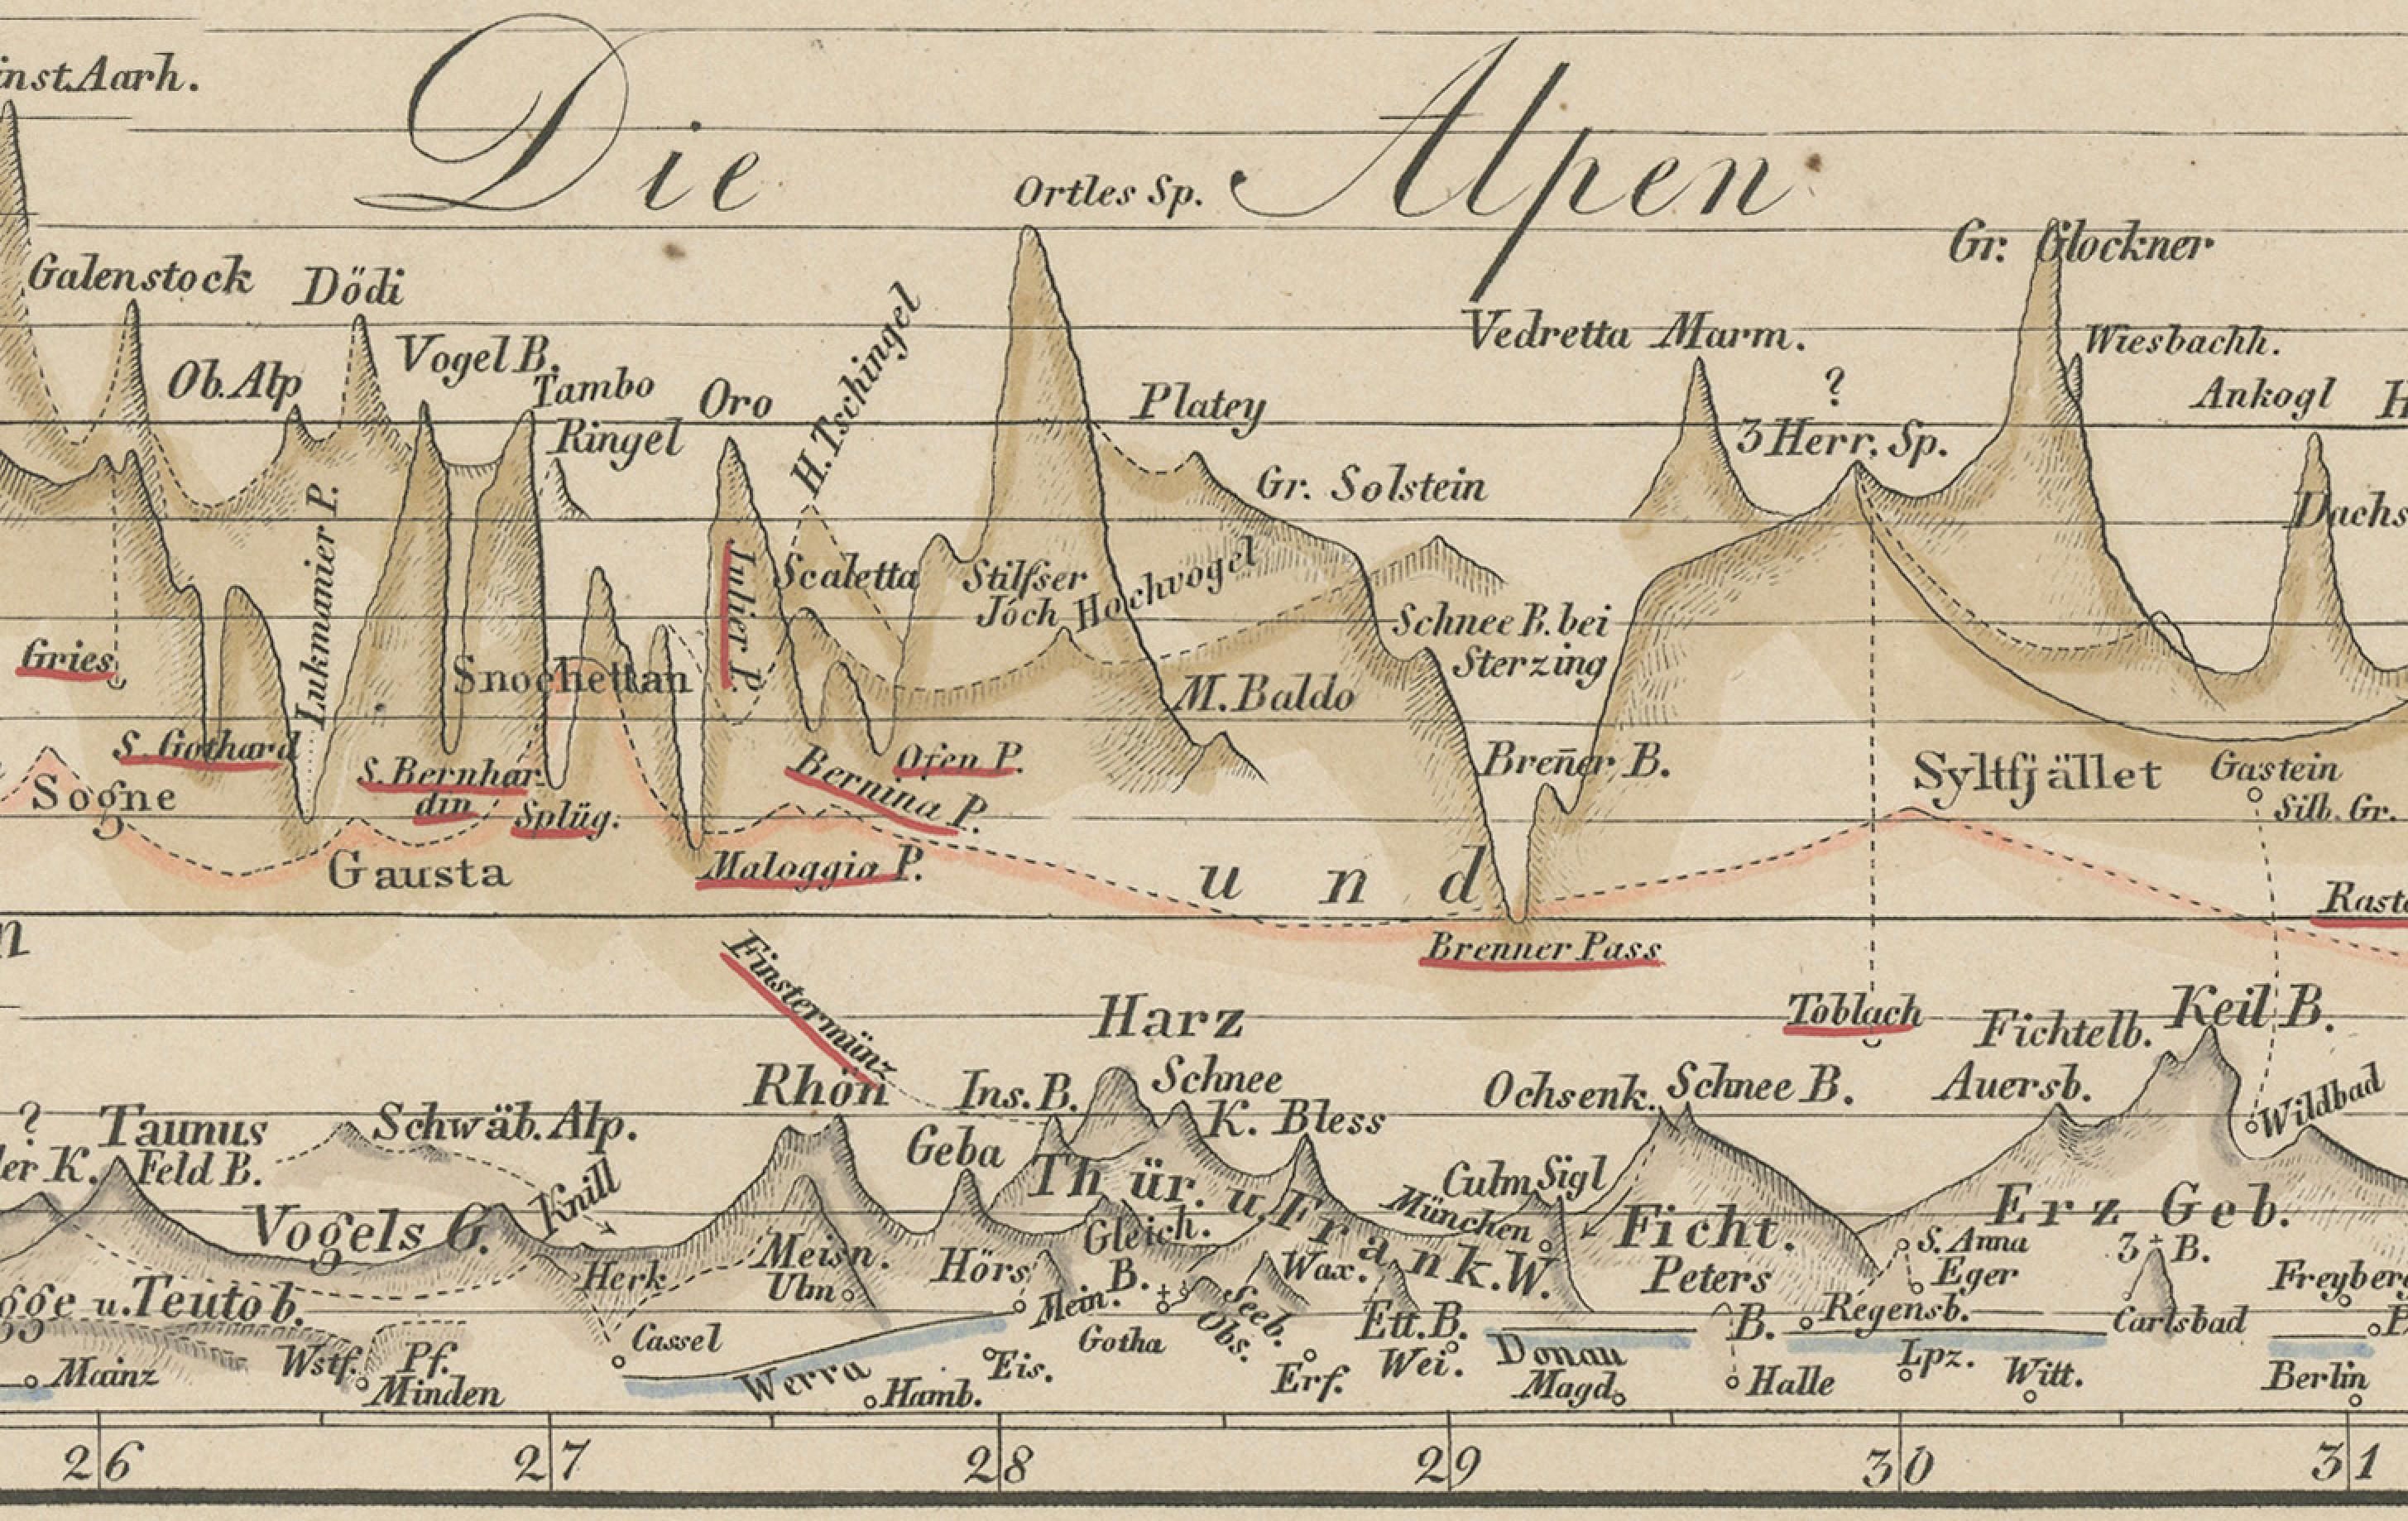 Die Alpen
Aarh.
Ortles Sp.
Gr. Glockner
Galenstock
Dödi
Vedretta Marm.
Wiesbachh.
Vogel B.
Ob. Alp
Tambo
Oro
H. Tschingel
Platey
?
Ankogl
Ringel
3 Herr. Sp.
Gr. Solstein
Lukmanier P.
Julier P.
Scaletta
Stilfser
Joch
Hochvogel
Schnee B. bei
Sterzing
Gries
Snochettan
M. Baldo
S. Gothard
S. Bernhar
din
Splüg.
Bernina P.
Ofen P.
Breñer B.
Syltfjället
Gastein
Silb. Gr.
Sogne
Gausta
Maloggia P.
und
Brenner Pass
Finstermünz
Harz
Toblach
Fichtelb.
Keil B.
Rhön
Ins. B.
Schnee
K.
Bless
Ochsenk.
Schnee B.
Auersb.
Wildbad
?
Taunus
Feld B.
Schwäb. Alp.
Geba
Thür. u. Frank. W.
Culm
Sigl
München
Vogels G.
Knill
Gleich.
B.
Ficht.
Erz Geb.
Meisn.
Ulm
Hörs
Herk
Wax.
Peters
B.
S. Anna
Eger
3 + B.
u. Teutob.
Mein.
Seeb.
Obs.
Ett. B.
Regensb.
Carlsbad
Cassel
Gotha
Donau
Mainz
Wstf.
Pf.
Minden
Werra
Hamb.
Eis.
Erf.
Wei.
Magd.
Halle
Lpz.
Witt.
Berlin
26 27 28 29 30 31